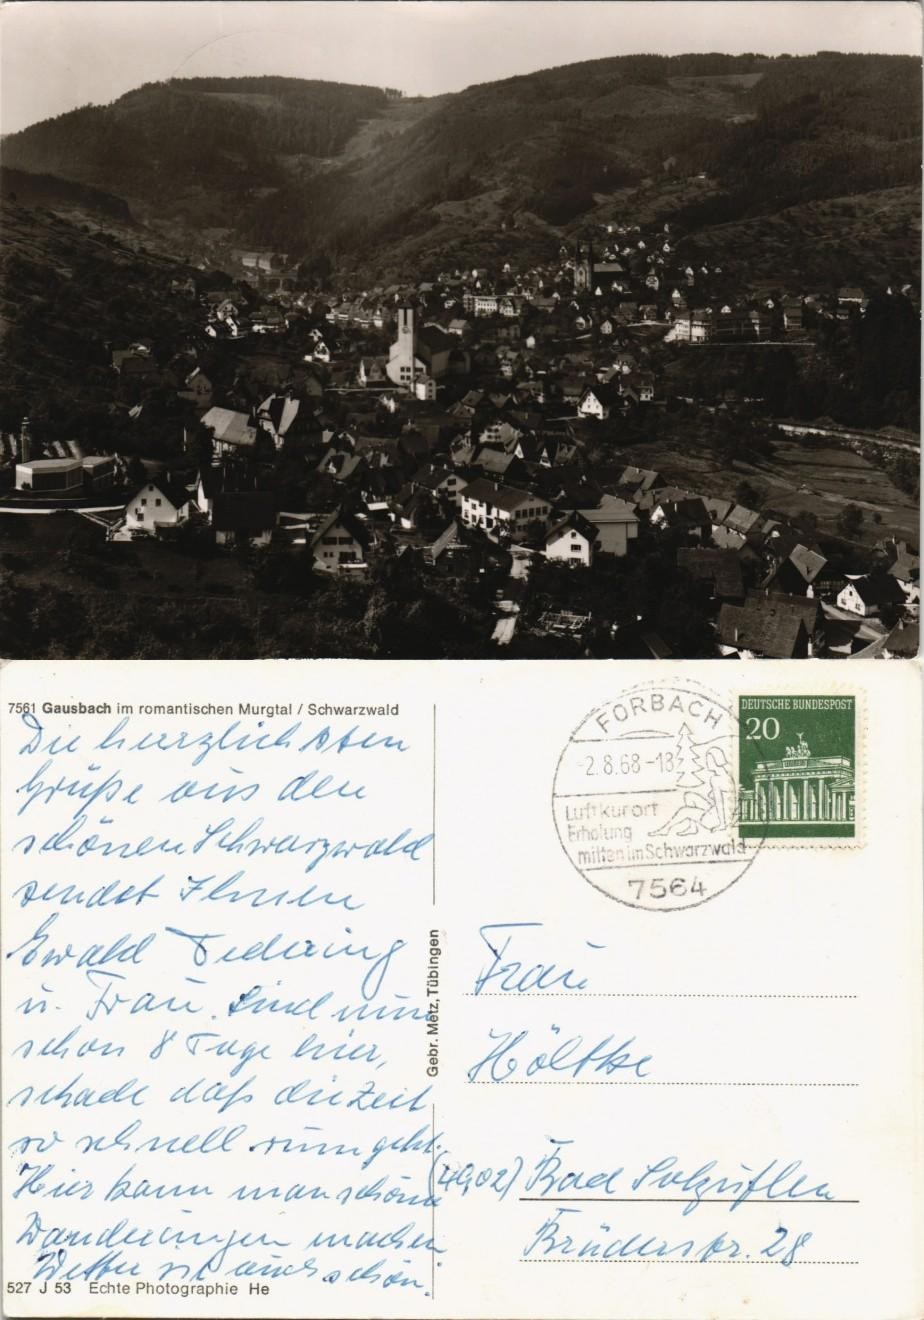 7561 Gausbach im romantischen Murgtal / Schwarzwald
Die herzlichsten
Grüße aus den
schönen Schwarzwald
sendet Ihnen
Ewald
u. Frau. Sind nun
schon 8 Tage hier,
schade daß die Zeit
so schnell rumgeht.
Hier kann man schöne
Wanderungen machen
Wetter ist auch schön.
527 J 53 Echte Photographie He
Gebr. Metz, Tübingen
FORBACH
-2.8.68-18
Luftkurort
Erholung
mitten im Schwarzwald
7564
DEUTSCHE BUNDESPOST
20
Frau
Höltke
(4902) Bad Salzuflen
Brüderstr. 28